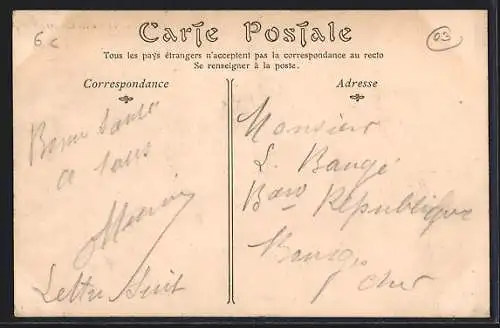 6 c
03
Carte Postale
Tous les pays étrangers n'acceptent pas la correspondance au recto
Se renseigner à la poste.
Correspondance
Adresse
Bonne Santé
a tous
Lettre Suit
Monsieur
L. Baugé
République
Cher